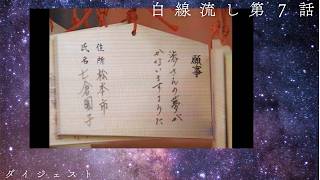 白線流し第7話
願事
渉さんの夢が
かないますように
住所 松本市
氏名 七倉園子
ダイジェスト